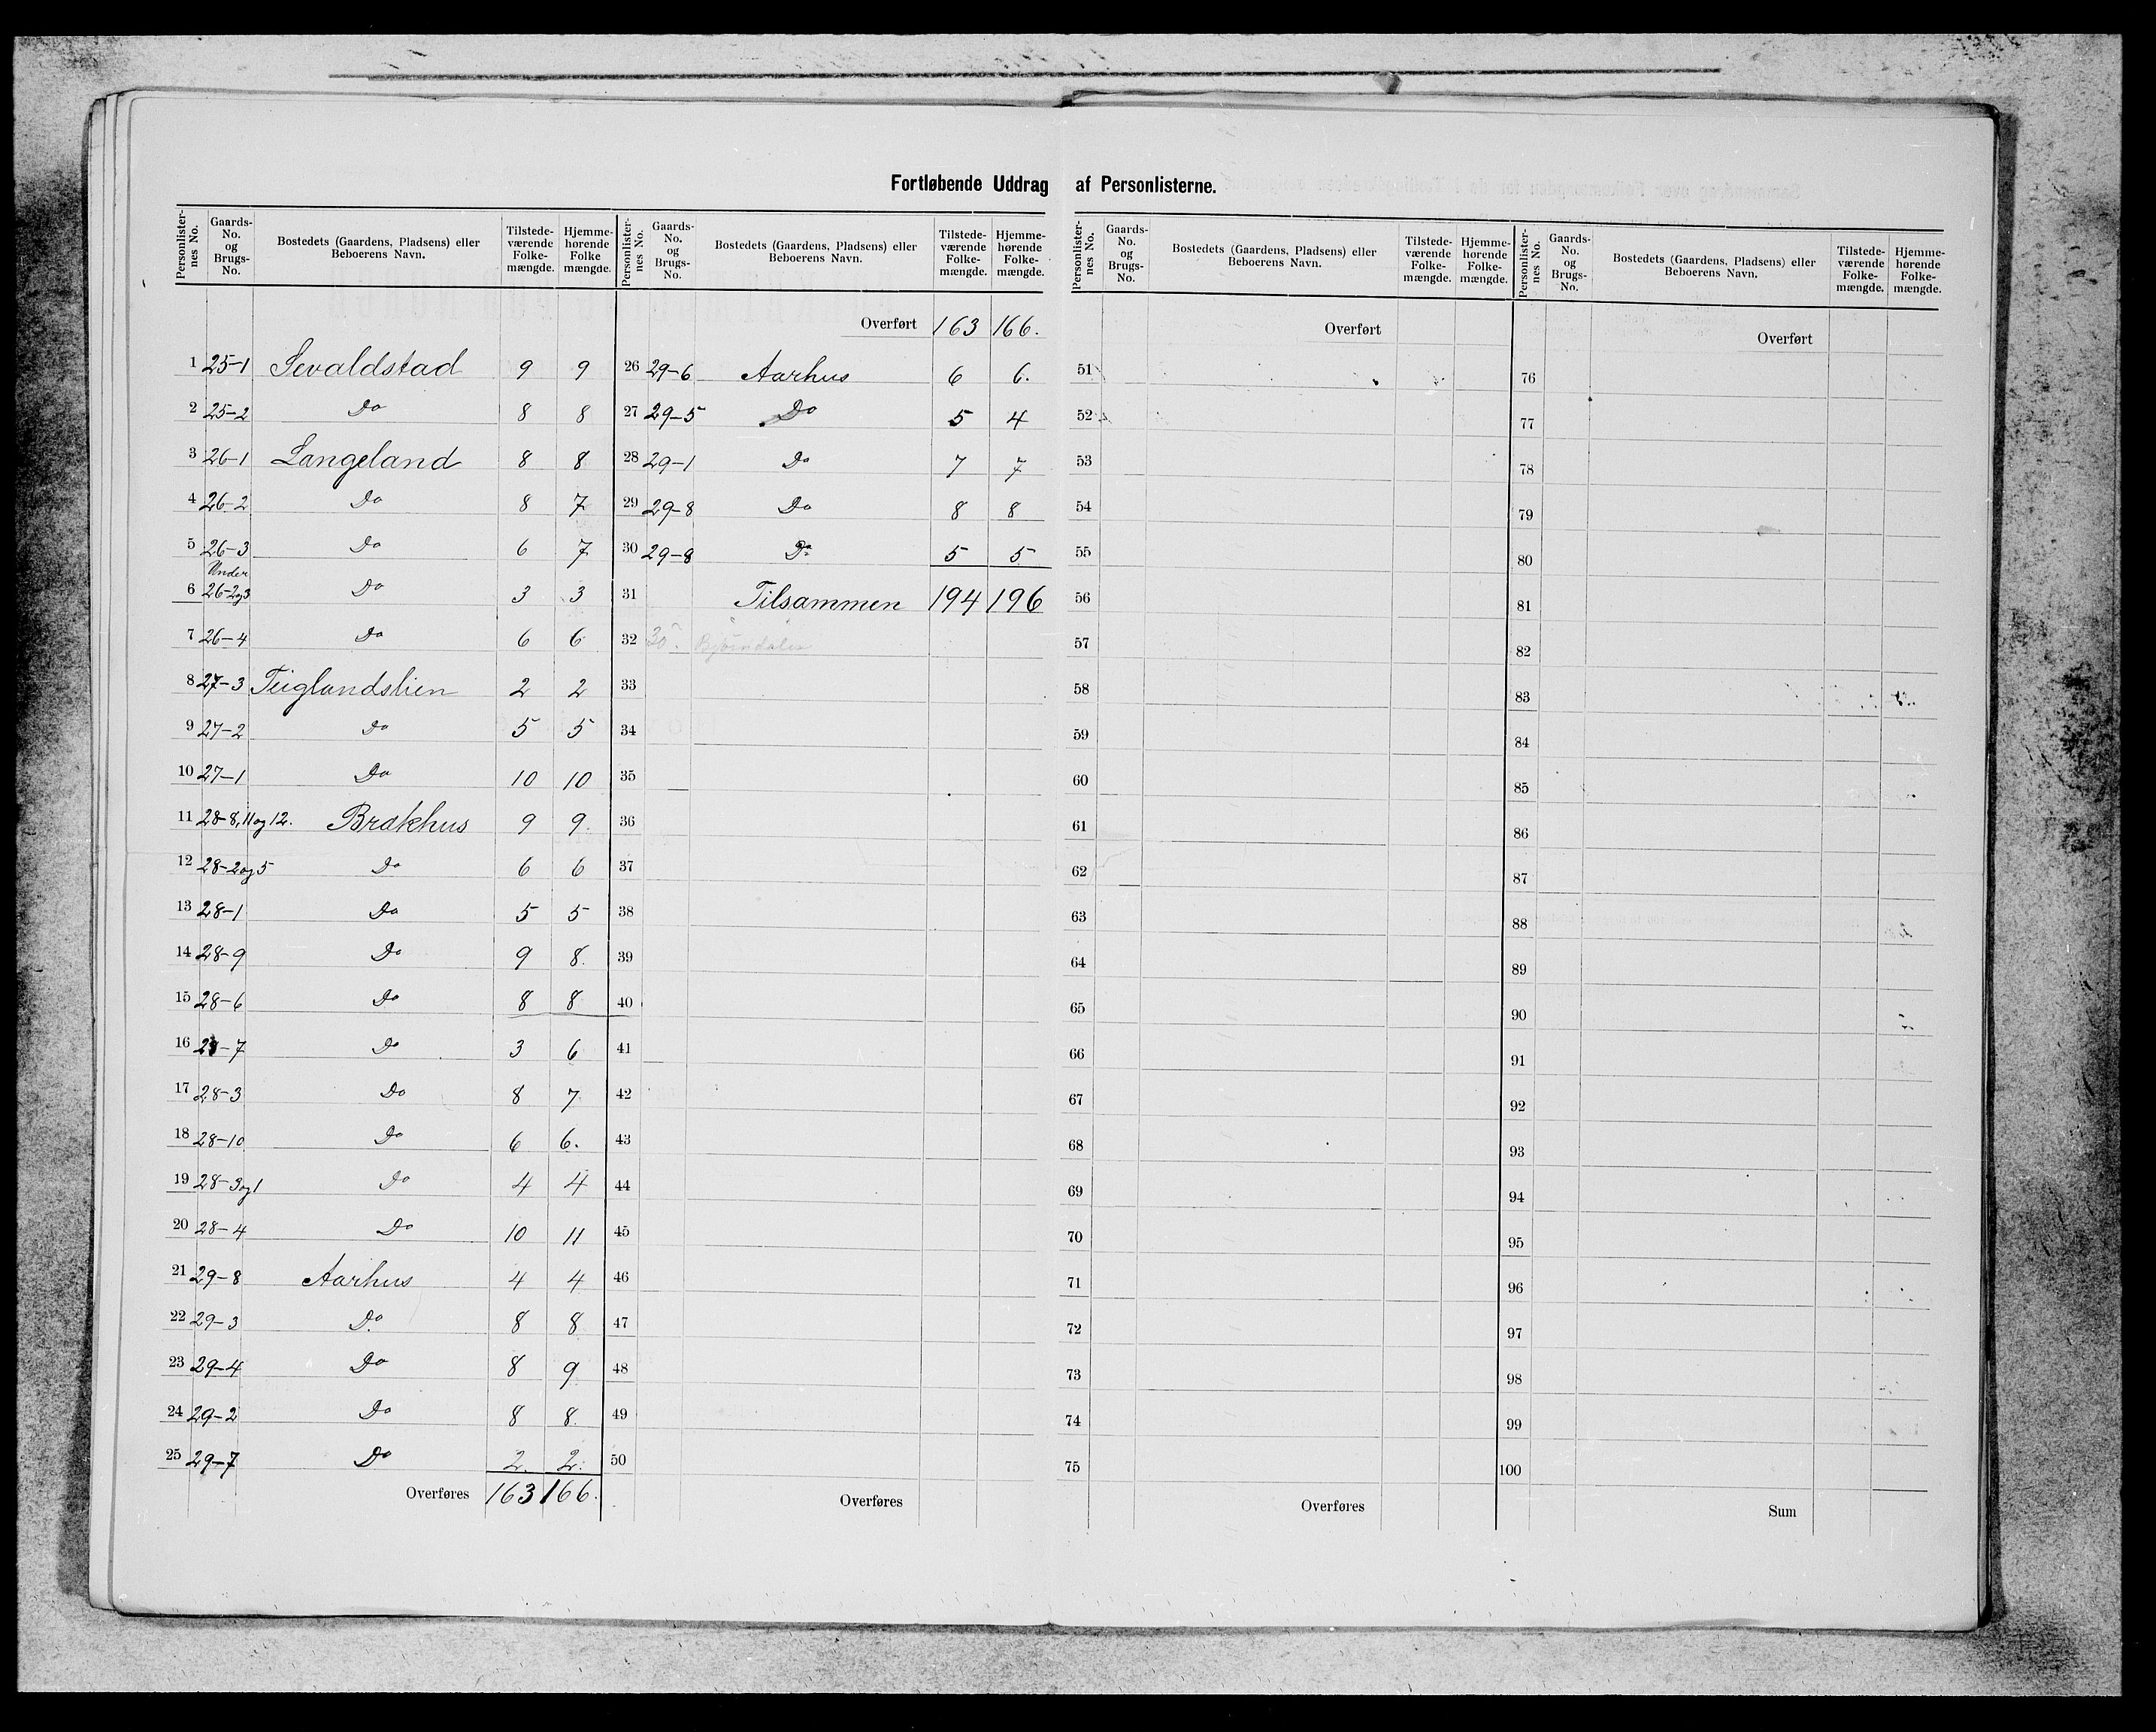 Fortløbende Uddrag af Personlisterne.
Personlisternes No. | Gaards-No. og Brugs-No. | Bostedets (Gaardens, Pladsens) eller Beboerens Navn. | Tilstedeværende Folkemængde. | Hjemmehørende Folkemængde.
1 25-1 Sevaldstad 9 9
2 25-2 Do 8 8
3 26-1 Langeland 8 8
4 26-2 Do 8 7
5 26-3 Do 6 7
6 Under 26-2og3 Do 3 3
7 26-4 Do 6 6
8 27-3 Teiglandslien 2 2
9 27-2 Do 5 5
10 27-1 Do 10 10
11 28-8, 11 og 12. Brakhus 9 9.
12 28-2og5 Do 6 6
13 28-1 Do 5 5
14 28-9 Do 9 8.
15 28-6 Do 8 8
16 28-7 Do 3 6
17 28-3 Do 8 7
18 28-10 Do 6 6.
19 28-3og1 Do 4 4
20 28-4 Do 10 11
21 29-8 Aarhus 4 4
22 29-3 Do 8 8
23 29-4 Do 8 9
24 29-2 Do 8 8.
25 29-7 Do 2. 2.
Overføres 163 166.
Personlisternes No. | Gaards-No. og Brugs-No. | Bostedets (Gaardens, Pladsens) eller Beboerens Navn. | Tilstedeværende Folkemængde. | Hjemmehørende Folkemængde.
Overført 163 166.
26 29-6 Aarhus 6 6.
27 29-5 Do 5 4
28 29-1 Do 7 7
29 29-8 Do 8 8
30 29-8 Do 5 5
31 Tilsammen 194 196
32 30.
33
34
35
36
37
38
39
40
41
42
43
44
45
46
47
48
49
50
Overføres
Personlisternes No. | Gaards-No. og Brugs-No. | Bostedets (Gaardens, Pladsens) eller Beboerens Navn. | Tilstedeværende Folkemængde. | Hjemmehørende Folkemængde.
Overført
51
52
53
54
55
56
57
58
59
60
61
62
63
64
65
66
67
68
69
70
71
72
73
74
75
Overføres
Personlisternes No. | Gaards-No. og Brugs-No. | Bostedets (Gaardens, Pladsens) eller Beboerens Navn. | Tilstedeværende Folkemængde. | Hjemmehørende Folkemængde.
Overført
76
77
78
79
80
81
82
83
84
85
86
87
88
89
90
91
92
93
94
95
96
97
98
99
100
Sum